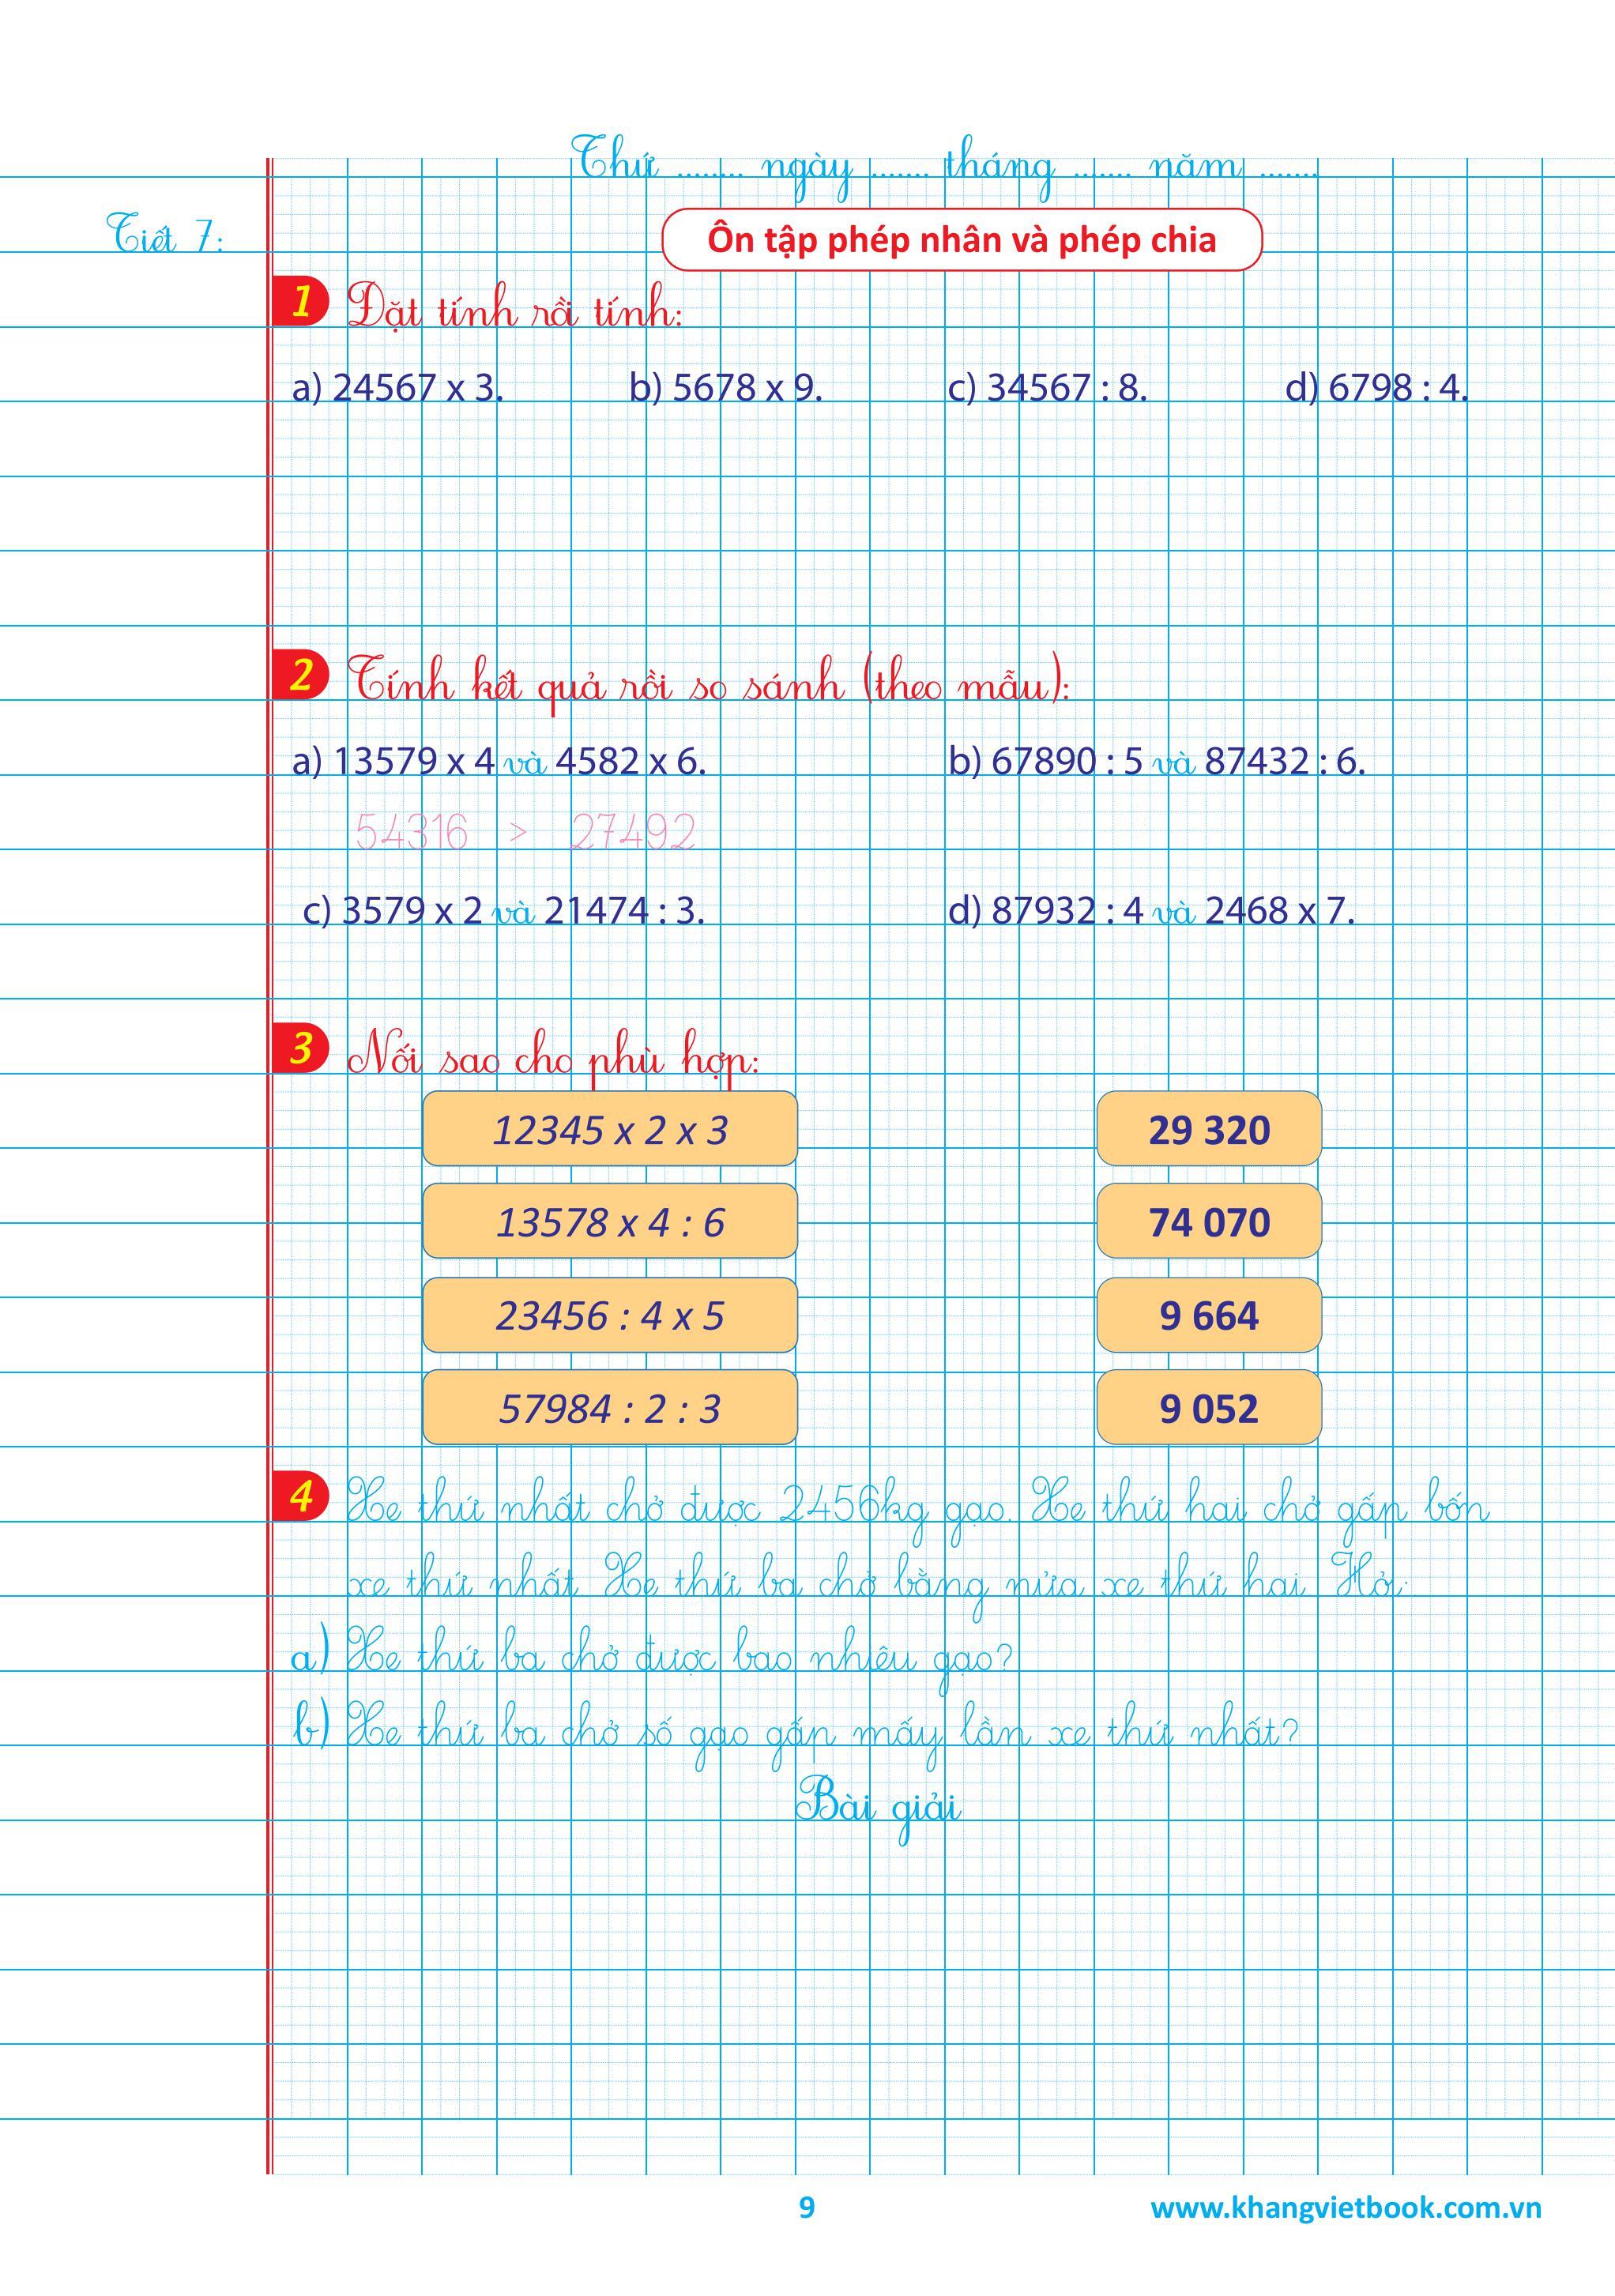 Thứ ........ ngày ....... tháng ....... năm .......
Tiết 7:
Ôn tập phép nhân và phép chia
1 Đặt tính rồi tính:
a) 24567 x 3. b) 5678 x 9. c) 34567 : 8. d) 6798 : 4.
2 Tính kết quả rồi so sánh (theo mẫu):
a) 13579 x 4 và 4582 x 6. b) 67890 : 5 và 87432 : 6.
54316 > 27492
c) 3579 x 2 và 21474 : 3. d) 87932 : 4 và 2468 x 7.
3 Nối sao cho phù hợp:
12345 x 2 x 3 29 320
13578 x 4 : 6 74 070
23456 : 4 x 5 9 664
57984 : 2 : 3 9 052
4 Xe thứ nhất chở được 2456kg gạo. Xe thứ hai chở gấp bốn
xe thứ nhất. Xe thứ ba chở bằng nửa xe thứ hai. Hỏi:
a) Xe thứ ba chở được bao nhiêu gạo?
b) Xe thứ ba chở số gạo gấp mấy lần xe thứ nhất?
Bài giải
9 www.khangvietbook.com.vn